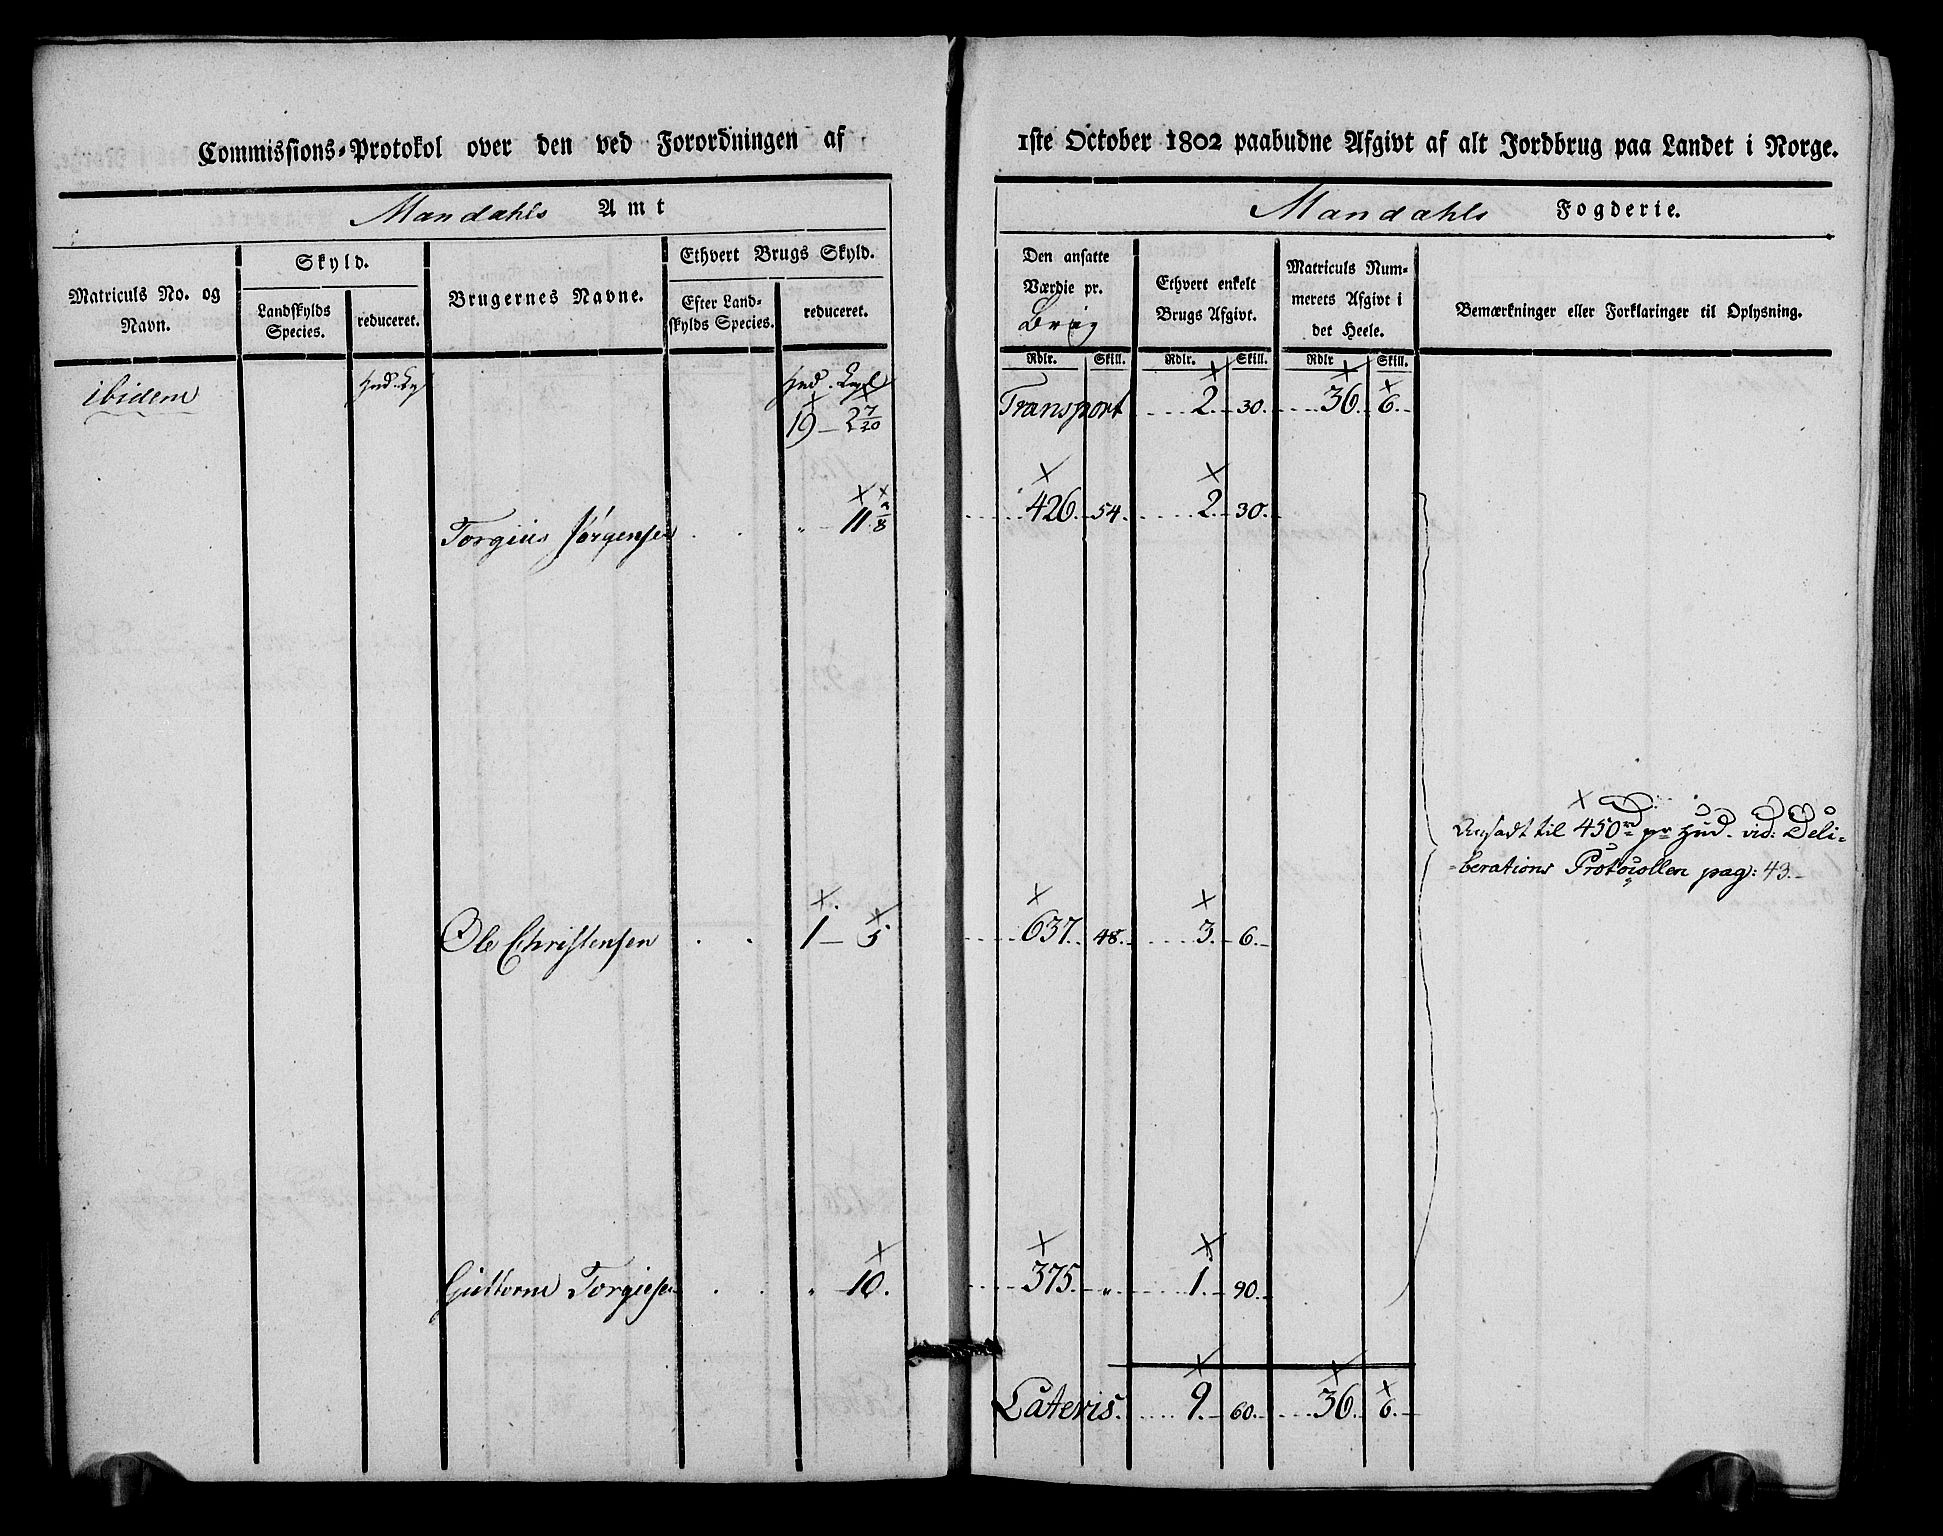 Commissions-Protokol over den ved Forordningen af
1ste October 1802 paabudne Afgivt af alt Jordbrug paa Landet i Norge.
Mandahls Amt
Mandahls Fogderie.
Matriculs No. og Navn.
Skyld.
Landskylds Species.
reduceret.
Brugernes Navne.
Ethvert Brugs Skyld.
Efter Landskylds Species.
reduceret.
Den ansatte Værdie pr. Brug
Ethvert enkelt Brugs Afgivt.
Matriculs Nummerets Afgivt i det Heele.
Bemærkninger eller Forklaringer til Oplysning.
Rdlr. Skill. Rdlr. Skill. Rdlr Skill.
ibidem
19 - 2 7/20 Transport 2. 30. 36. 6.
Torgius Jørgensen " - 11 3/8 426. 54. 2. 30.
Ansadt til 450rd pr Hud. vid: Deli-
berations Protocollen pag: 43.
Ole Christensen 1 - 5 637. 48. 3. 6.
Torgiesen " 10. 375. " 1. 90.
Lateris. 9. 60. 36. 6.